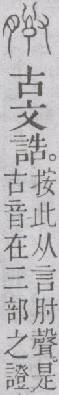 古文誥。按此从言肘聲。是
古音在三部之證